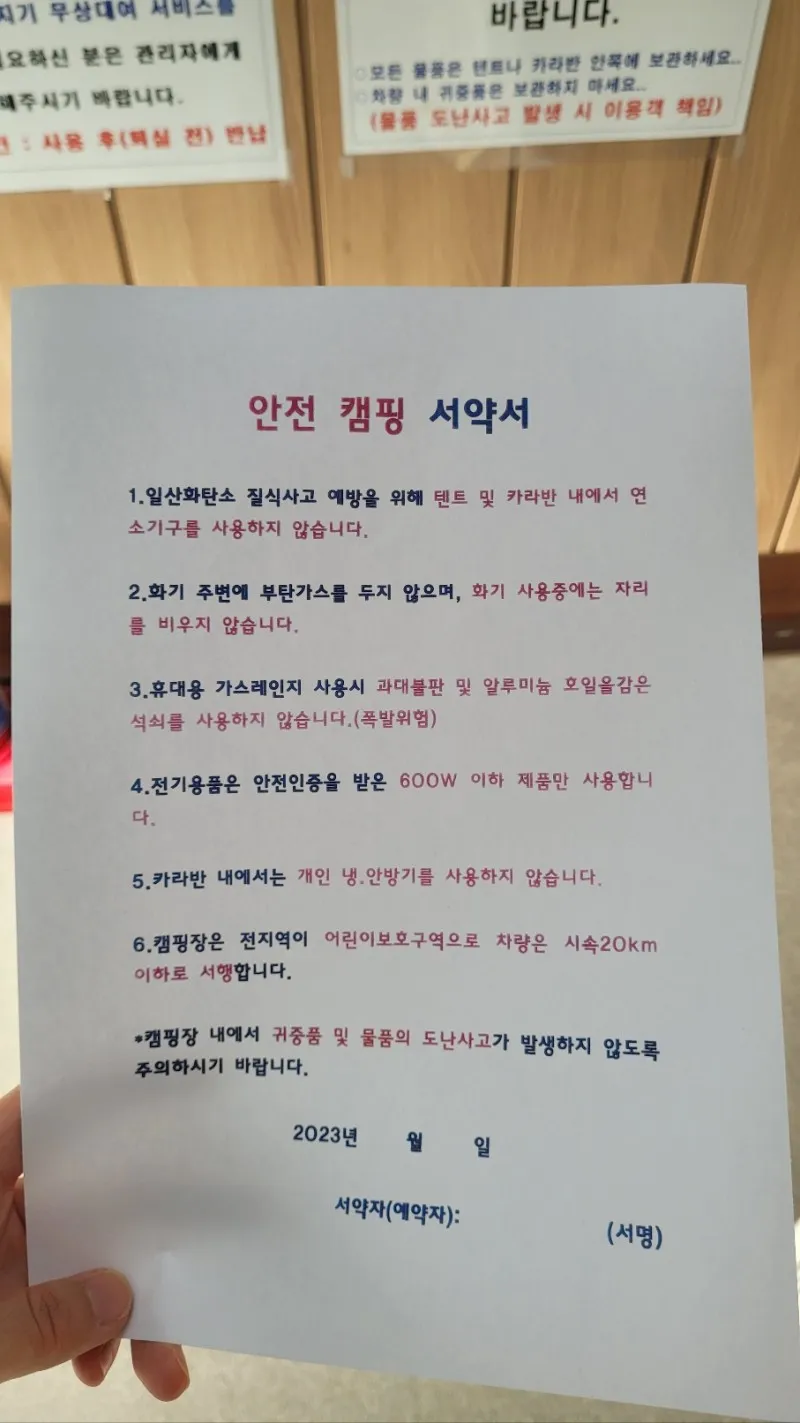 지기 무상대여 서비스를
요하신 분은 관리자에게
해주시기 바랍니다.
: 사용 후(퇵실 전) 반납
바랍니다.
○모든 물품은 텐트나 카라반 안쪽에 보관하세요..
○차량 내 귀중품은 보관하지 마세요..
(물품 도난사고 발생 시 이용객 책임)
안전 캠핑 서약서
1.일산화탄소 질식사고 예방을 위해 텐트 및 카라반 내에서 연
소기구를 사용하지 않습니다.
2.화기 주변에 부탄가스를 두지 않으며, 화기 사용중에는 자리
를 비우지 않습니다.
3.휴대용 가스레인지 사용시 과대불판 및 알루미늄 호일올감은
석쇠를 사용하지 않습니다.(폭발위험)
4.전기용품은 안전인증을 받은 600W 이하 제품만 사용합니
다.
5.카라반 내에서는 개인 냉.안방기를 사용하지 않습니다.
6.캠핑장은 전지역이 어린이보호구역으로 차량은 시속20km
이하로 서행합니다.
*캠핑장 내에서 귀중품 및 물품의 도난사고가 발생하지 않도록
주의하시기 바랍니다.
2023년 월 일
서약자(예약자):
(서명)